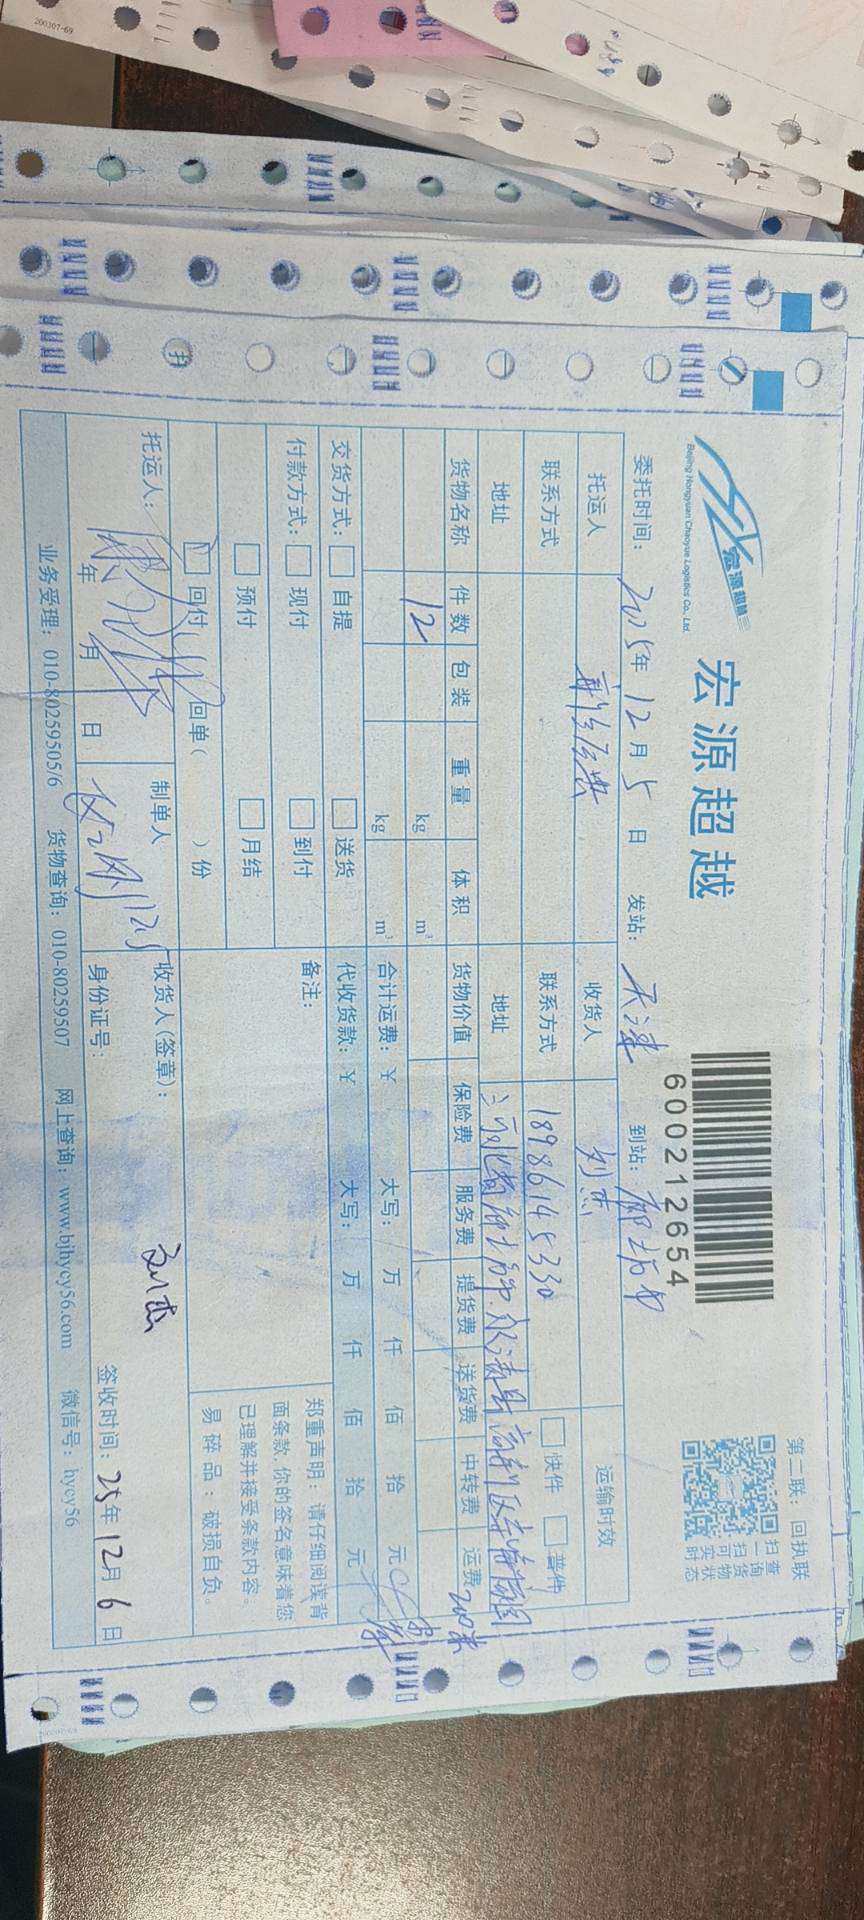 宏源超越
Beijing Hongyuan Chaoyue Logistics Co., Ltd.
宏源超越
600212654
第二联：回执联
扫一扫
查询货物
可实时状态
委托时间：2025年12月5日 发站：天津 到站：廊坊市
托运人 收货人 刘杰 运输时效
联系方式 联系方式 18986145330 快件 普件
地址 地址 河北省廊坊市永清县高新区
货物名称 件数 包装 重量 体积 货物价值 保险费 服务费 提货费 送货费 中转费 运费
12 kg m³ 200
kg m³ 合计运费：¥ 大写： 万 仟 佰 拾 元
交货方式： 自提 送货 代收货款：¥ 大写： 万 仟 佰 拾 元
付款方式： 现付 到付 备注：
预付 月结
回付 回单（ ）份
郑重声明：请仔细阅读背
面条款，你的签名意味着您
已理解并接受条款内容。
易碎品：破损自负。
托运人： 制单人 收货人(签章)： 刘杰
年 月 日 12.5 身份证号： 签收时间：25年12月6日
业务受理：010-80259505/6 货物查询：010-80259507 网上查询：www.bjhycy56.com 微信号：hycy56
200307-69